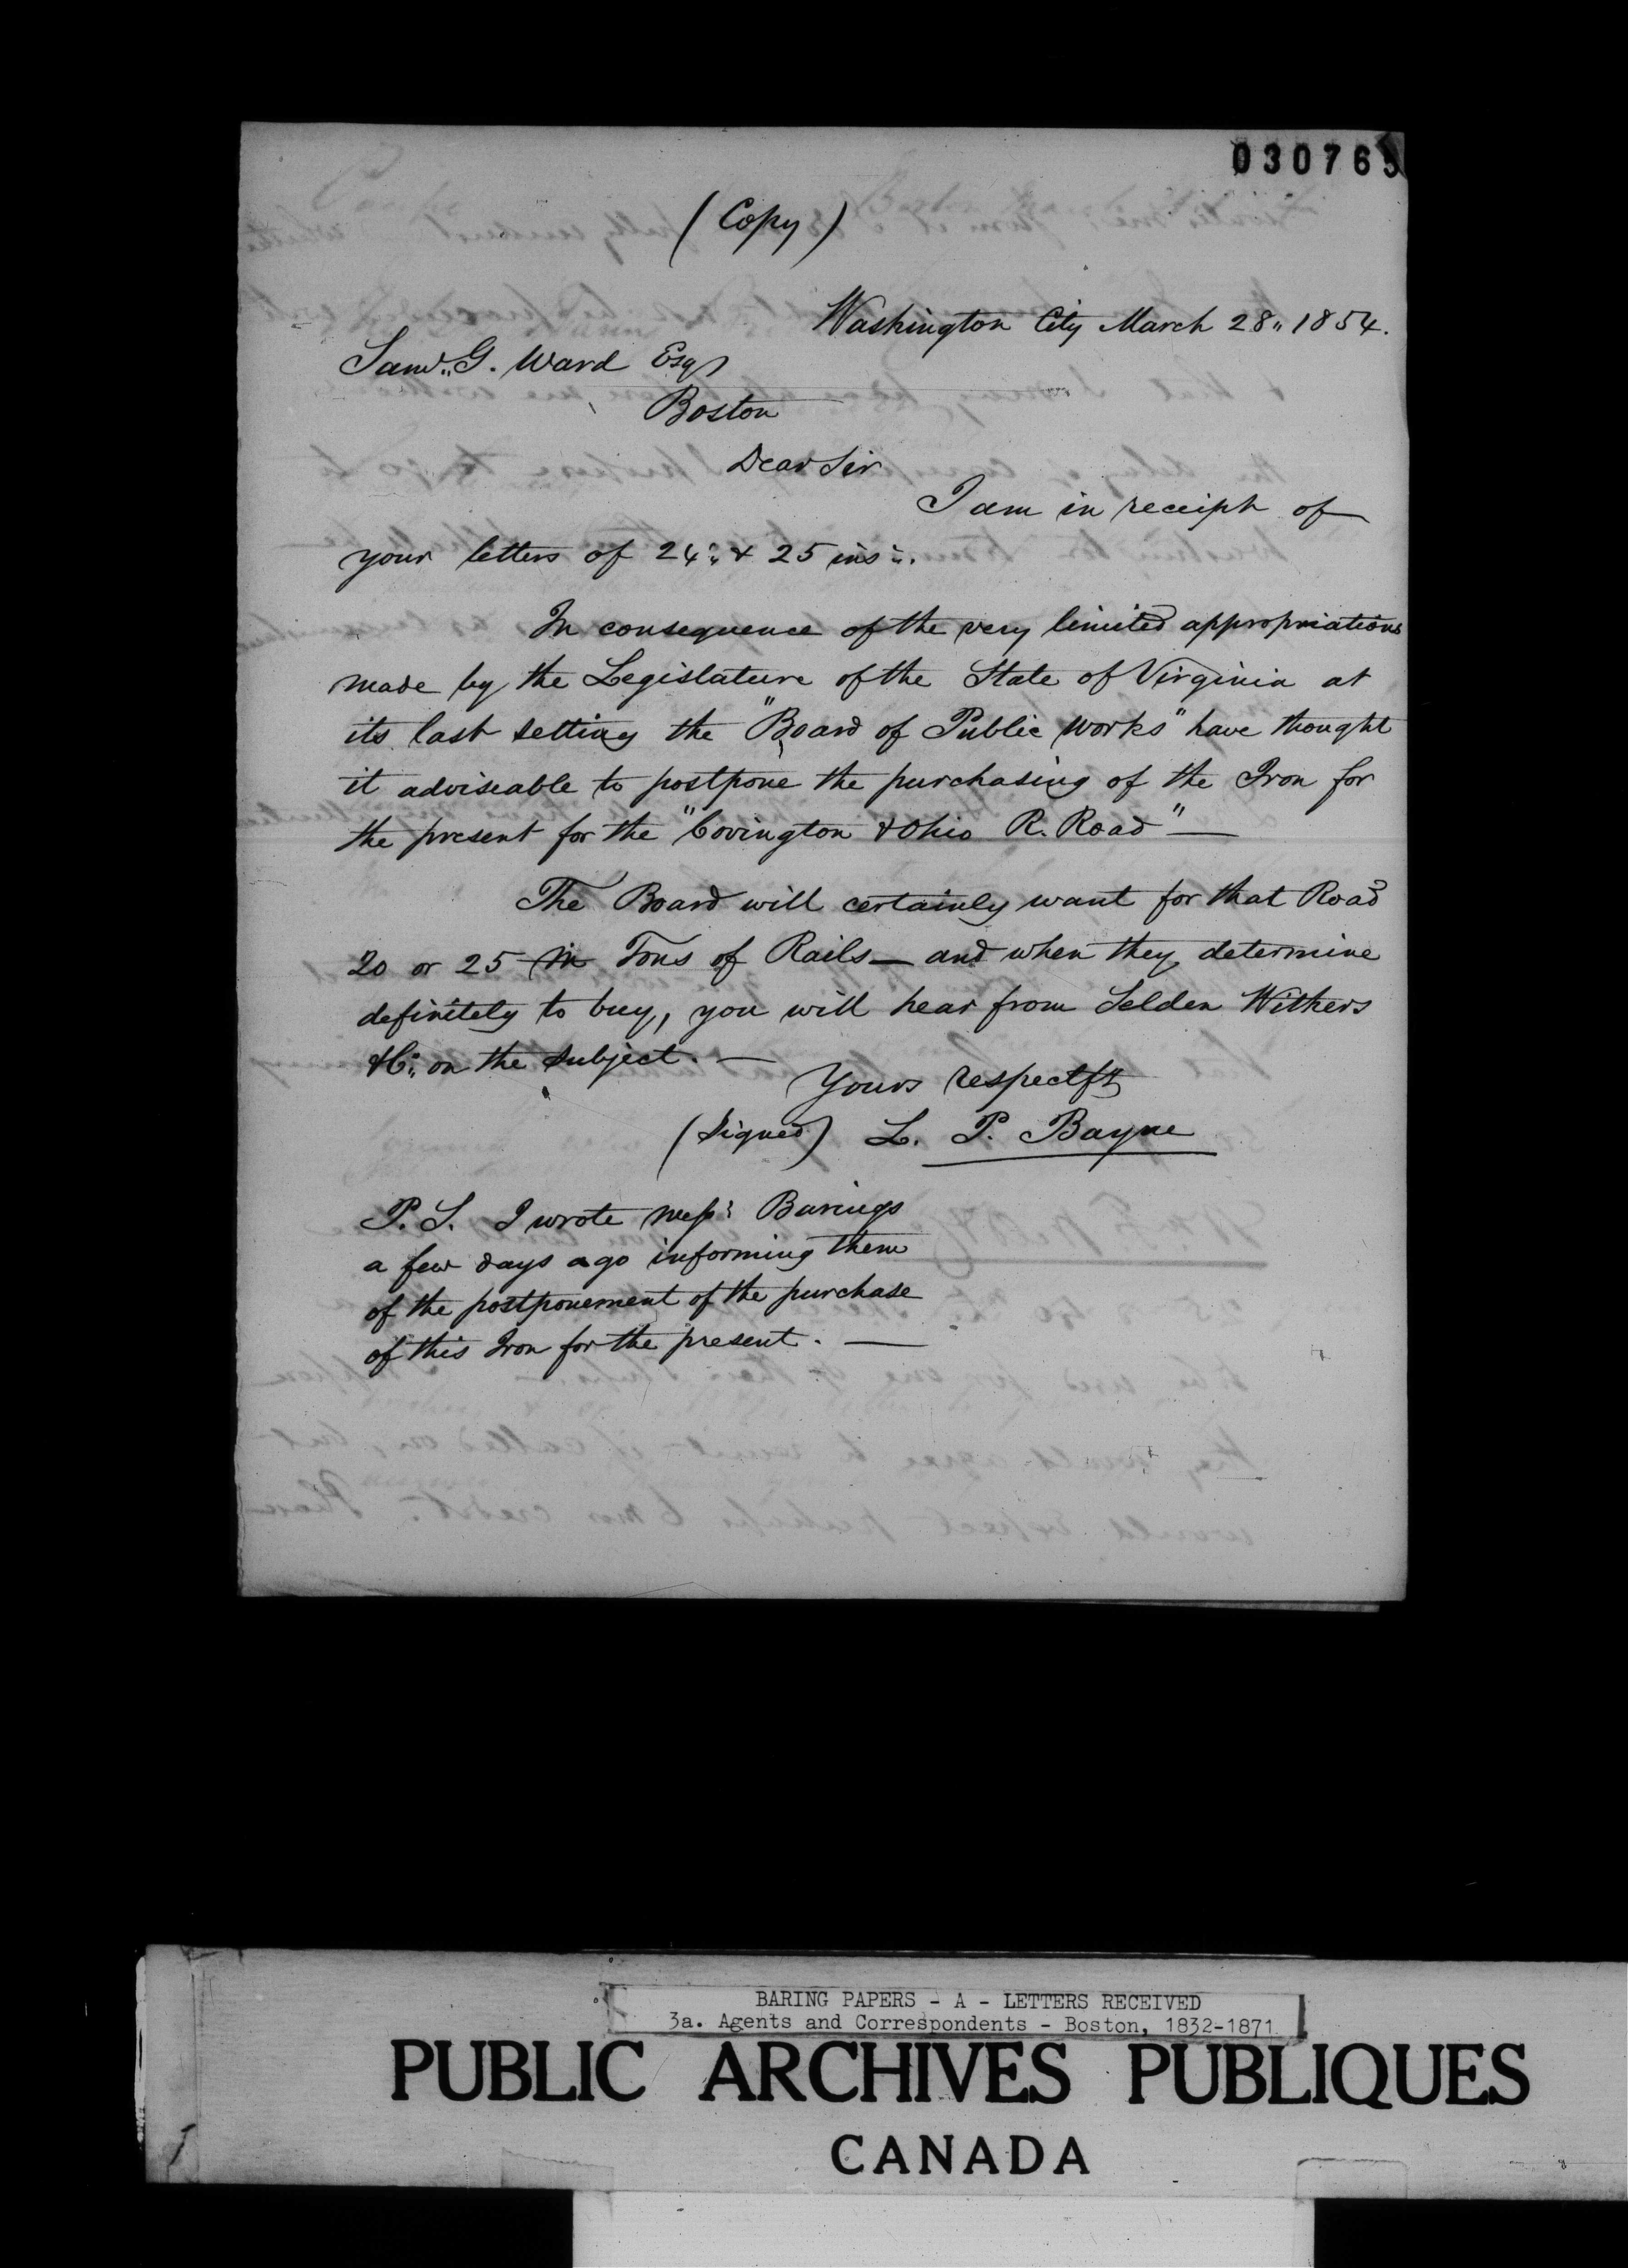 030765
(Copy)
Washington City March 28,, 1854.
Saml,, G. Ward Esqr
Boston
Dear Sir
I am in receipt of
your letters of 24,, & 25 ins,,.
In consequence of the very limited appropriations
made by the Legislature of the State of Virginia at
its last setting the "Board of Public Works" have thought
it adviseable to postpone the purchasing of the Iron for
the present for the "Covington & Ohio R. Road" —
The Board will certainly want for that Road
20 or 25 m Tons of Rails — and when they determine
definitely to buy, you will hear from Selden Withers
& Co,, on the subject. —
Yours respectfy
(Signed) L. P. Bayne
P.S. I wrote Messrs Barings
a few days ago informing them
of the postponement of the purchase
of this Iron for the present. —
BARING PAPERS - A - LETTERS RECEIVED
3a. Agents and Correspondents - Boston, 1832-1871
PUBLIC ARCHIVES PUBLIQUES
CANADA